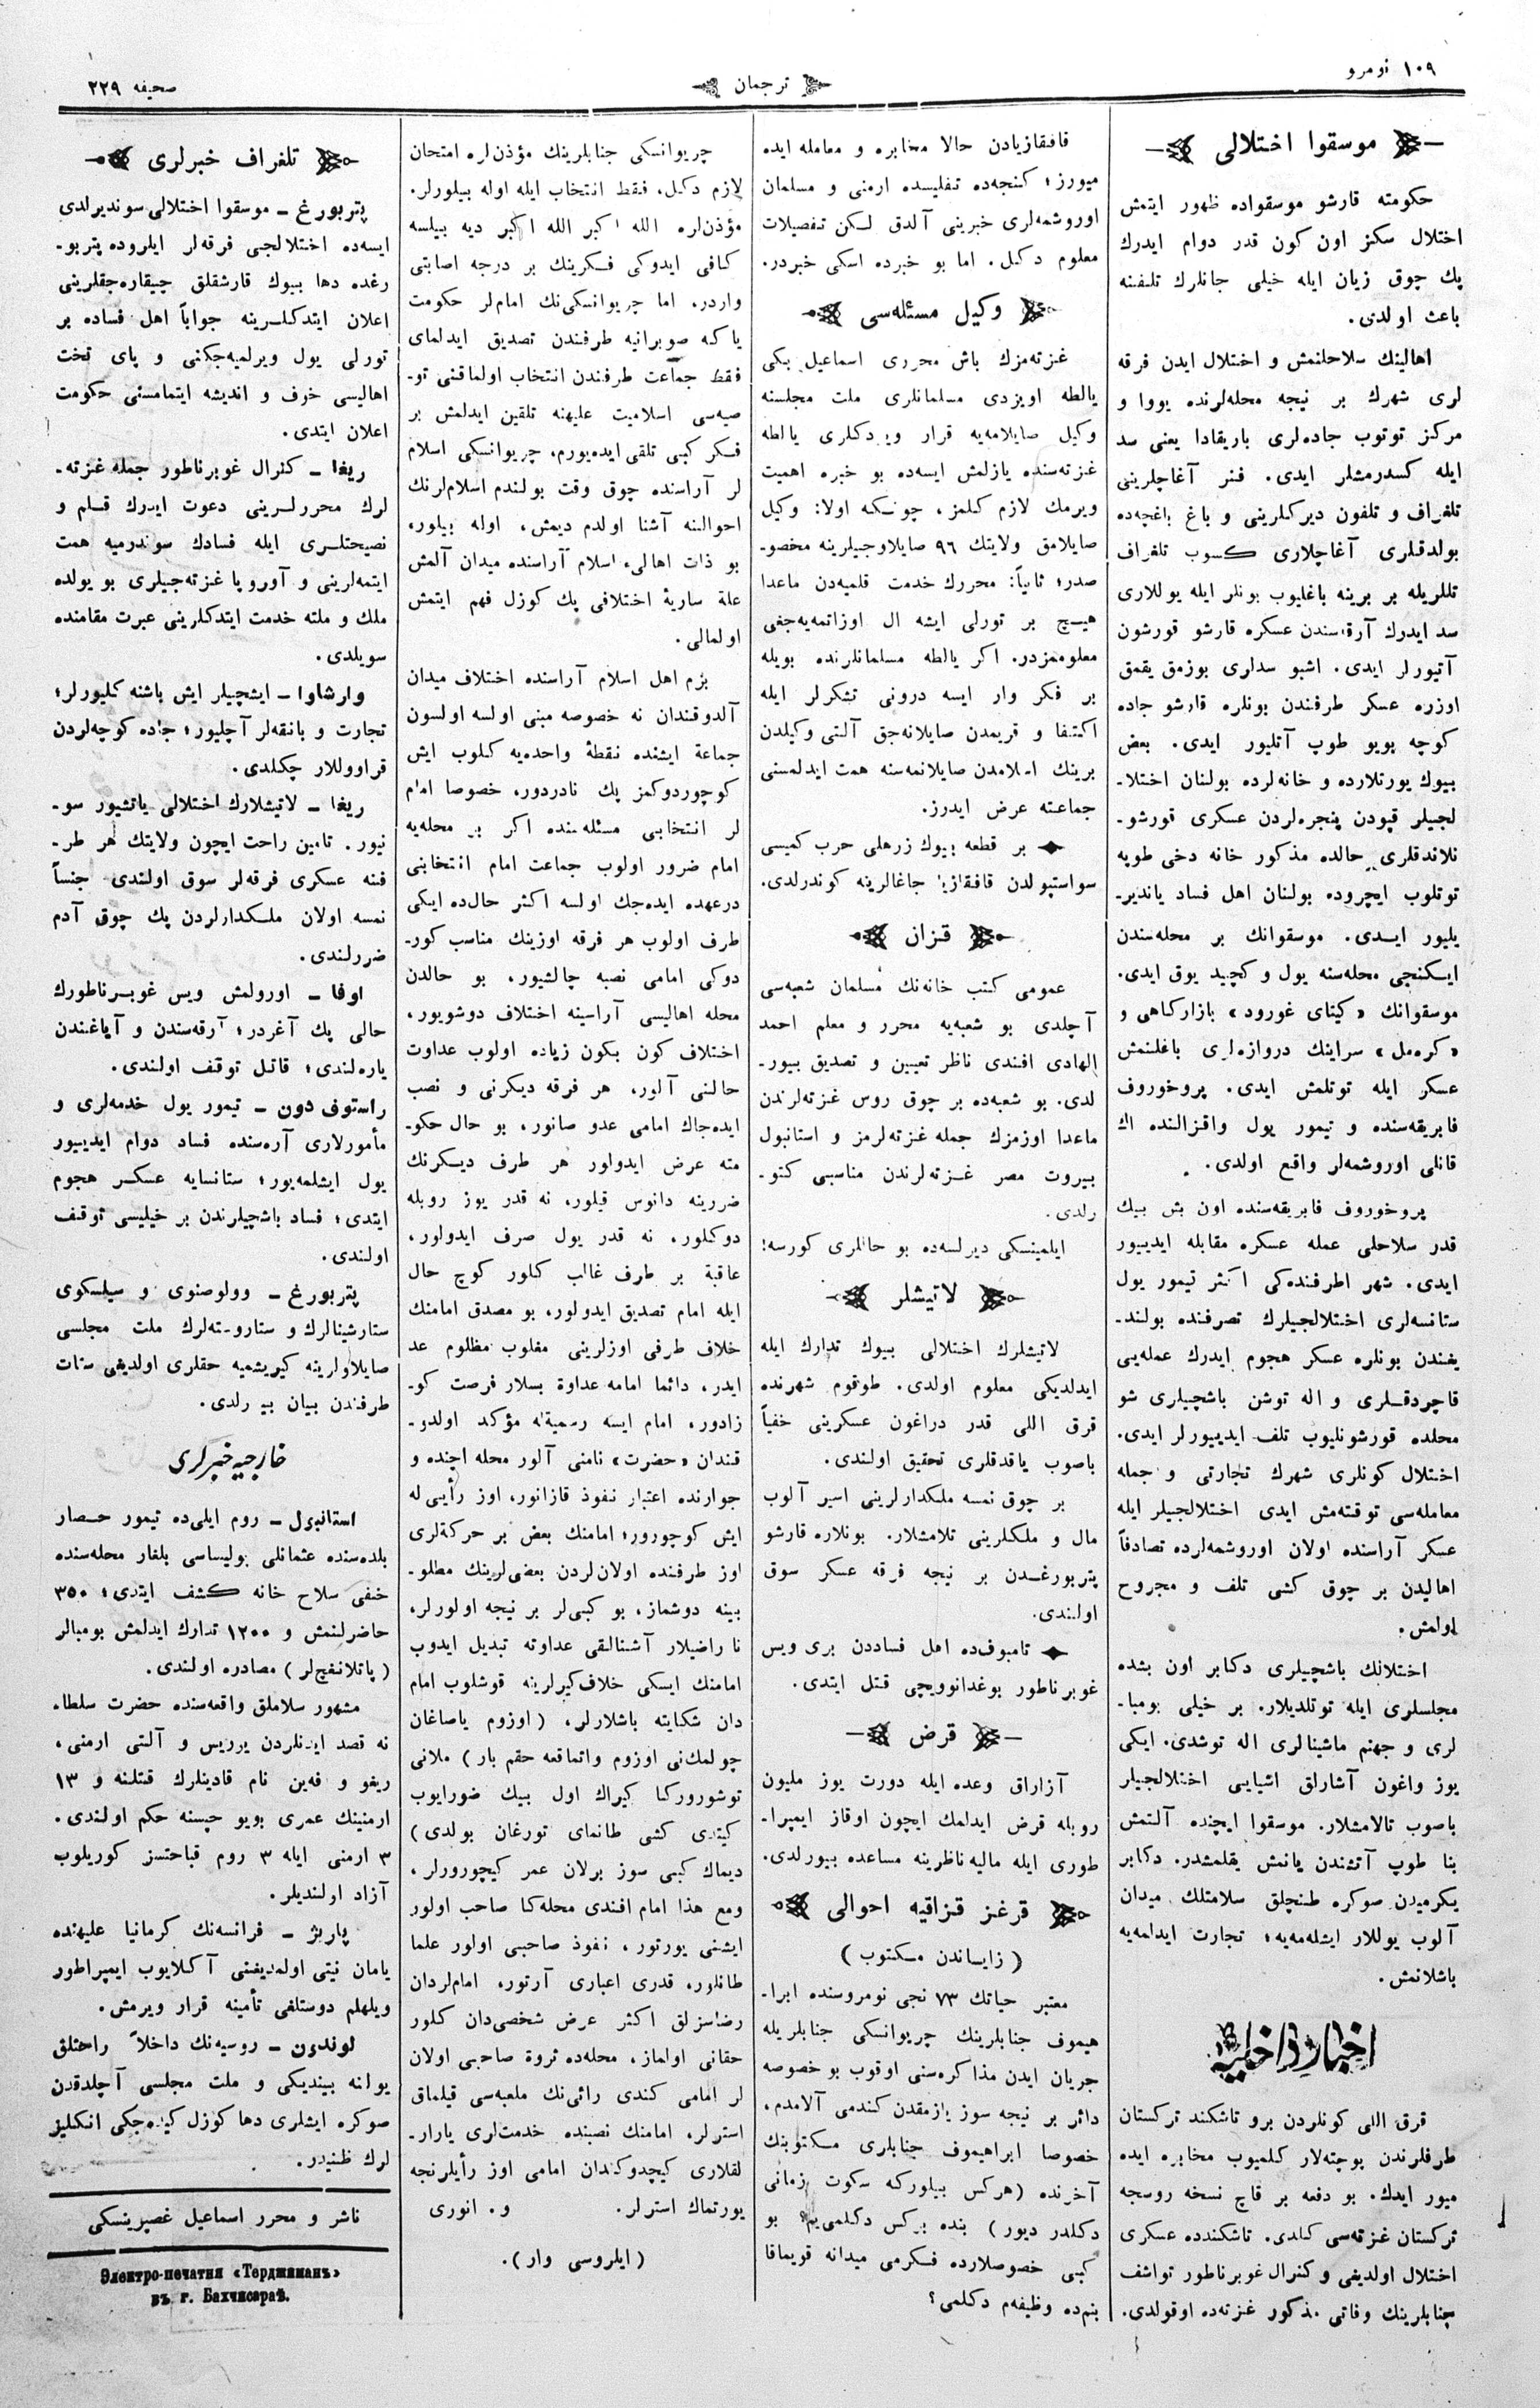 ١٠٩ نومرو
ترجمان
صحیفه ٢٢٩
موسقوا اختلالی
حکومته قارشو موسقواده ظهور ایتمش
اختلال سکز اون کون قدر دوام ایدرك
پك چوق زیان ایله خیلی جانلرك تلفنه
باعث اولدی.
اهالینك سلاحلنمش و اختلال ایدن فرقه
لری شهرك بر نیجه محله‌لرنده یووا و
مرکز توتوب جاده‌لری باریقادا یعنی سد
ایله کسدرمشلر ایدی. فنر آغاچلرینی
تلغراف و تلفون دیرکلرینی و باغ باغچه‌ده
بولدقلری آغاچلاری کسوب تلغراف
تللریله بر برینه باغلیوب بونلر ایله یوللاری
سد ایدرك آرقه‌سندن عسکره قارشو قورشون
آتیورلر ایدی. اشبو سدلری بوزمق یقمق
اوزره عسکر طرفندن بونلره قارشو جاده
کوچه بویو طوپ آتلیور ایدی. بعض
بیوك یورتلارده و خانه‌لرده بولنان اختلا-
لجیلر قپودن پنجره‌لردن عسکری قورشو-
نلاندقلری حالده مذکور خانه دخی طوپه
توتلوب ایچروده بولنان اهل فساد یاندیر-
یلیور ایدی. موسقوانك بر محله‌سندن
ایکنجی محله‌سنه یول و کچید یوق ایدی.
موسقوانك «کیتای غورود» بازارکاهی و
«کره‌مل» سراینك دروازه‌لری باغلنمش
عسکر ایله توتلمش ایدی. پروخوروف
فابریقه‌سنده و تیمور یول واقزالنده اك
قانلی اوروشمه‌لر واقع اولدی.
پروخوروف فابریقه‌سنده اون بش بیك
قدر سلاحلی عمله عسکره مقابله ایدییور
ایدی. شهر اطرفنده‌کی اکثر تیمور یول
ستانسه‌لری اختلالجیلرك تصرفنده بولند-
یغندن بونلره عسکر هجوم ایدرك عمله‌یی
قاچردقلری و اله توشن باشچیلری شو
محلده قورشونلیوب تلف ایدییورلر ایدی.
اختلال کونلری شهرك تجارتی و جمله
معامله‌سی توقته‌مش ایدی اختلالجیلر ایله
عسکر آراسنده اولان اوروشمه‌لرده تصادفاً
اهالیدن بر چوق کشی تلف و مجروح
اولمش.
اختلالك باشچیلری دکابر اون بشده
مجلسلری ایله توتلدیلار. بر خیلی بومبا-
لری و جهنم ماشینالری اله توشدی. ایکی
یوز واغون آشارلق اشیایی اختلالجیلر
باصوب تالامشلار. موسقوا ایچنده آلتمش
بنا طوپ آتشندن یانمش یقلمشدر. دکابر
یکرمیدن صوکره طنچلق سلامتلك میدان
آلوب یوللار ایشله‌مه‌یه؛ تجارت ایدلمه‌یه
باشلانمش.
اخبار داخلیه
قرق اللی کونلردن برو تاشکند ترکستان
طرفلرندن پوچته‌لار کلمیوب مخابره ایده
میور ایدك. بو دفعه بر قاچ نسخه روسجه
ترکستان غزته‌سی کلدی. تاشکندده عسکری
اختلال اولدیغی و کنرال غوبرناطور تواشف
جنابلرینك وفاتی مذکور غزته‌ده اوقولدی.
قافقازیادن حالا مخابره و معامله ایده
میورز؛ کنجه‌ده تفلیسده ارمنی و مسلمان
اوروشمه‌لری خبرینی آلدق لکن تفصیلات
معلوم دکل. اما بو خبرده اسکی خبردر.
وکیل مسئله‌سی
غزته‌مزك باش محرری اسماعیل بکی
یالطه اویزدی مسلمانلری ملت مجلسنه
وکیل صایلامه‌یه قرار ویردکلری یالطه
غزته‌سنده یازلمش ایسه‌ده بو خبره اهمیت
ویرمك لازم کلمز، چونکه اولا: وکیل
صایلامق ولایتك ٩٦ صایلاوجیلرینه مخصو-
صدر؛ ثانیاً: محررك خدمت قلمیه‌دن ماعدا
هیچ بر تورلی ایشه ال اوزاتمه‌یه‌جغی
معلومزدر. اکر یالطه مسلمانلرنده بویله
بر فکر وار ایسه درونی تشکرلر ایله
اکتفا و قریمدن صایلانه‌جق آلتی وکیلدن
برینك اسلامدن صایلانمه‌سنه همت ایدلمسنی
جماعته عرض ایدرز.
بر قطعه بیوك زرهلی حرب کمیسی
سواستپولدن قافقازیا جاغالرینه کوندرلدی.
قزان
عمومی کتب خانه‌نك مسلمان شعبه‌سی
آچلدی بو شعبه‌یه محرر و معلم احمد
الهادی افندی ناظر تعیین و تصدیق بیور-
لدی. بو شعبه‌ده بر چوق روس غزته‌لرندن
ماعدا اوزمزك جمله غزته‌لرمز و استانبول
بیروت مصر غزته‌لرندن مناسبی کتو-
رلدی.
ایلمینسکی دیرلسه‌ده بو حاللری کورسه!
لاتیشلر
لاتیشلرك اختلالی بیوك تدارك ایله
ایدلدیکی معلوم اولدی. طوقوم شهرنده
قرق اللی قدر دراغون عسکرینی خفیاً
باصوب یاقدقلری تحقیق اولندی.
بر چوق نمسه ملکدارلرینی اسیر آلوب
مال و ملکلرینی تلامشلار. بونلاره قارشو
پتربورغدن بر نیجه فرقه عسکر سوق
اولندی.
تامبوف‌ده اهل فساددن بری ویس
غوبرناطور بوغدانوویچی قتل ایتدی.
قرض
آزاراق وعده ایله دورت یوز ملیون
روبله قرض ایدلمك ایچون اوقاز ایمپرا-
طوری ایله مالیه ناظرینه مساعده بیورلدی.
قرغز قزاقیه احوالی
(زایساندن مکتوب)
معتبر حیاتك ٧٣ نجی نومروسنده ابرا-
هیموف جنابلرینك چریوانسکی جنابلریله
جریان ایدن مذاکره‌سنی اوقوب بو خصوصه
دائر بر نیجه سوز یازمقدن کندمی آلامدم،
خصوصا ابراهیموف جنابلری مکتوبنك
آخرنده (هرکس بیلورکه سکوت زمانی
دکلدر دیور) بنده برکس دکلمی‌یم؟ بو
کبی خصوصلارده فکرمی میدانه قویماقا
بنم‌ده وظیفه‌م دکلمی؟
چریوانسکی جنابلرینك مؤذن‌لره امتحان
لازم دکل، فقط انتخاب ایله اوله بیلورلر.
مؤذن‌لره الله اکبر الله اکبر دیه بیلسه
کافی ایدوکی فکرینك بر درجه اصابتی
واردر. اما چریوانسکی‌نك امام‌لر حکومت
یاکه صوبرانیه طرفندن تصدیق ایدلمای
فقط جماعت طرفندن انتخاب اولماقنی تو-
صیه‌سی اسلامیت علیهنه تلقین ایدلمش بر
فکر کبی تلقی ایده‌یورم، چریوانسکی اسلام
لر آراسنده چوق وقت بولندم اسلام‌لرنك
احوالنه آشنا اولدم دیمش، اوله بیلور،
بو ذات اهالی‌ء اسلام آراسنده میدان آلمش
علة ساریۀ اختلافی پك کوزل فهم ایتمش
اولمالی.
بزم اهل اسلام آراسنده اختلاف میدان
آلدوقندان نه خصوصه مبنی اولسه اولسون
جماعة ایشنده نقطۀ واحده‌یه کلوب ایش
کوچوردوکمز پك نادردور، خصوصا امام
لر انتخابی مسئله‌سنده اکر بر محله‌یه
امام ضرور اولوب جماعت امام انتخابنی
درعهده ایده‌جك اولسه اکثر حال‌ده ایکی
طرف اولوب هر فرقه اوزینك مناسب کور-
دوکی امامی نصبه چالشیور، بو حالدن
محله اهالیسی آراسینه اختلاف دوشویور،
اختلاف کون بکون زیاده اولوب عداوت
حالنی آلور، هر فرقه دیکرنی و نصب
ایده‌جاك امامی عدو صانور، بو حال حکو-
مته عرض ایدولور هر طرف دیکرنك
ضررینه دانوس قیلور، نه قدر یوز روبله
دوکلور، نه قدر یول صرف ایدولور،
عاقبة بر طرف غالب کلور کوچ حال
ایله امام تصدیق ایدولور، بو مصدق امامنك
خلاف طرفی اوزلرینی مغلوب مظلوم عد
ایدر، دائما امامه عداوة بسلار فرصت کو-
زادور، امام ایسه رسمیة‌له مؤکد اولدو-
قندان «حضرت» نامنی آلور محله اچنده و
جوارنده اعتبار نفوذ قازانور، اوز رأیی له
ایش کوچورور؛ امامنك بعض بر حرکة‌لری
اوز طرفنده اولان‌لردن بعضی‌لرینك مطلو-
بینه دوشماز، بو کبی‌لر بر نیجه اولورلر،
نا راضیلار آشنالقی عداوته تبدیل ایدوب
امامنك ایسکی خلاف‌کیرلرینه قوشلوب امام
دان شکایته باشلارلر، (اوزوم یاصاغان
چولمك‌نی اوزوم واتماقعه حقم بار) ملانی
توشورورکا کیراك اول بیك ضورایوب
کیتدی کشی طانمای تورغان بولدی)
دیماك کبی سوز برلان عمر کیچورورلر،
ومع هذا امام افندی محله‌کا صاحب اولور
ایشنی یورتور، نفوذ صاحبی اولور علما
طانلور، قدری اعباری آرتور، امام‌لردان
رضاسزلق اکثر عرض شخصی‌دان کلور
حقانی اولماز، محله‌ده ثروة صاحبی اولان
لر امامی کندی رائی‌نك ملعبه‌سی قیلماق
استرلر، امامنك نصبنده خدمت‌لری یارار-
لقلاری کیچدوکندان امامی اوز رأیلرنجه
یورتماك استرلر. و. انوری
(ایلروسی وار).
تلغراف خبرلری
پتربورغ - موسقوا اختلالی سوندیرلدی
ایسه‌ده اختلالجی فرقه‌لر ایلروده پتربو-
رغده دها بیوك قارشقلق چیقاره‌جقلرینی
اعلان ایتدکلرینه جواباً اهل فساده بر
تورلی یول ویرلمیه‌جکنی و پای تخت
اهالیسی خوف و اندیشه ایتمامسنی حکومت
اعلان ایتدی.
ریغا - کنرال غوبرناطور جمله غزته-
لرك محررلرینی دعوت ایدرك قلم و
نصیحتلری ایله فسادك سوندرمیه همت
ایتمه‌لرینی و آوروپا غزته‌جیلری بو یولده
ملك و ملته خدمت ایتدکلرینی عبرت مقامنده
سویلدی.
وارشاوا - ایشچیلر ایش باشنه کلیورلر؛
تجارت و بانقه‌لر آچلیور؛ جاده کوچه‌لردن
قراووللار چکلدی.
ریغا - لاتیشلارك اختلالی یاتشیور سو-
نیور. تامین راحت ایچون ولایتك هر طر-
فنه عسکری فرقه‌لر سوق اولندی. جنساً
نمسه اولان ملکدارلردن پك چوق آدم
ضررلندی.
اوفا - اورولمش ویس غوبرناطورك
حالی پك آغردر؛ آرقه‌سندن و آیاغندن
یاره‌لندی؛ قاتل توقف اولندی.
راستوف دون - تیمور یول خدمه‌لری و
مأمورلاری آره‌سنده فساد دوام ایدییور
یول ایشلمه‌یور؛ ستانسایه عسکر هجوم
ایتدی؛ فساد باشچیلرندن بر خیلیسی توقیف
اولندی.
پتربورغ - وولوصنوی و سیلسکوی
ستارشینالرك و ستاروسته‌لرك ملت مجلسی
صایلاولرینه کیریشمیه حقلری اولدیغی سنات
طرفندن بیان بیورلدی.
خارجیه خبرلری
استانبول - روم ایلی‌ده تیمور حصار
بلده‌سنده عثمانلی پولیساسی بلغار محله‌سنده
خفی سلاح خانه کشف ایتدی؛ ٣٥٠
حاضرلنمش و ١٢٠٠ تدارك ایدلمش بومبالر
(پاتلانغچ‌لر) مصادره اولندی.
مشهور سلاملق واقعه‌سنده حضرت سلطا-
نه قصد ایدنلردن یرریس و آلتی ارمنی،
ریغو و فه‌ین نام قادینلرك قتلنه و ١٣
ارمنینك عمری بویو حبسنه حکم اولندی.
٣ ارمنی ایله ٣ روم قباحتسز کوریلوب
آزاد اولندیلر.
پاریژ - فرانسه‌نك کرمانیا علیهنده
یامان نیتی اولمدیغنی آکلایوب ایمپراطور
ویلهلم دوستلغی تأمینه قرار ویرمش.
لوندون - روسیه‌نك داخلاً راحتلق
یولنه بیندیکی و ملت مجلسی آچلدقدن
صوکره ایشلری دها کوزل کیده‌جکی انکلیز
لرك ظنیدر.
ناشر و محرر اسماعیل غصپرینسکی
Электро-печатня «Терджиманъ»
въ г. Бахчисараѣ.